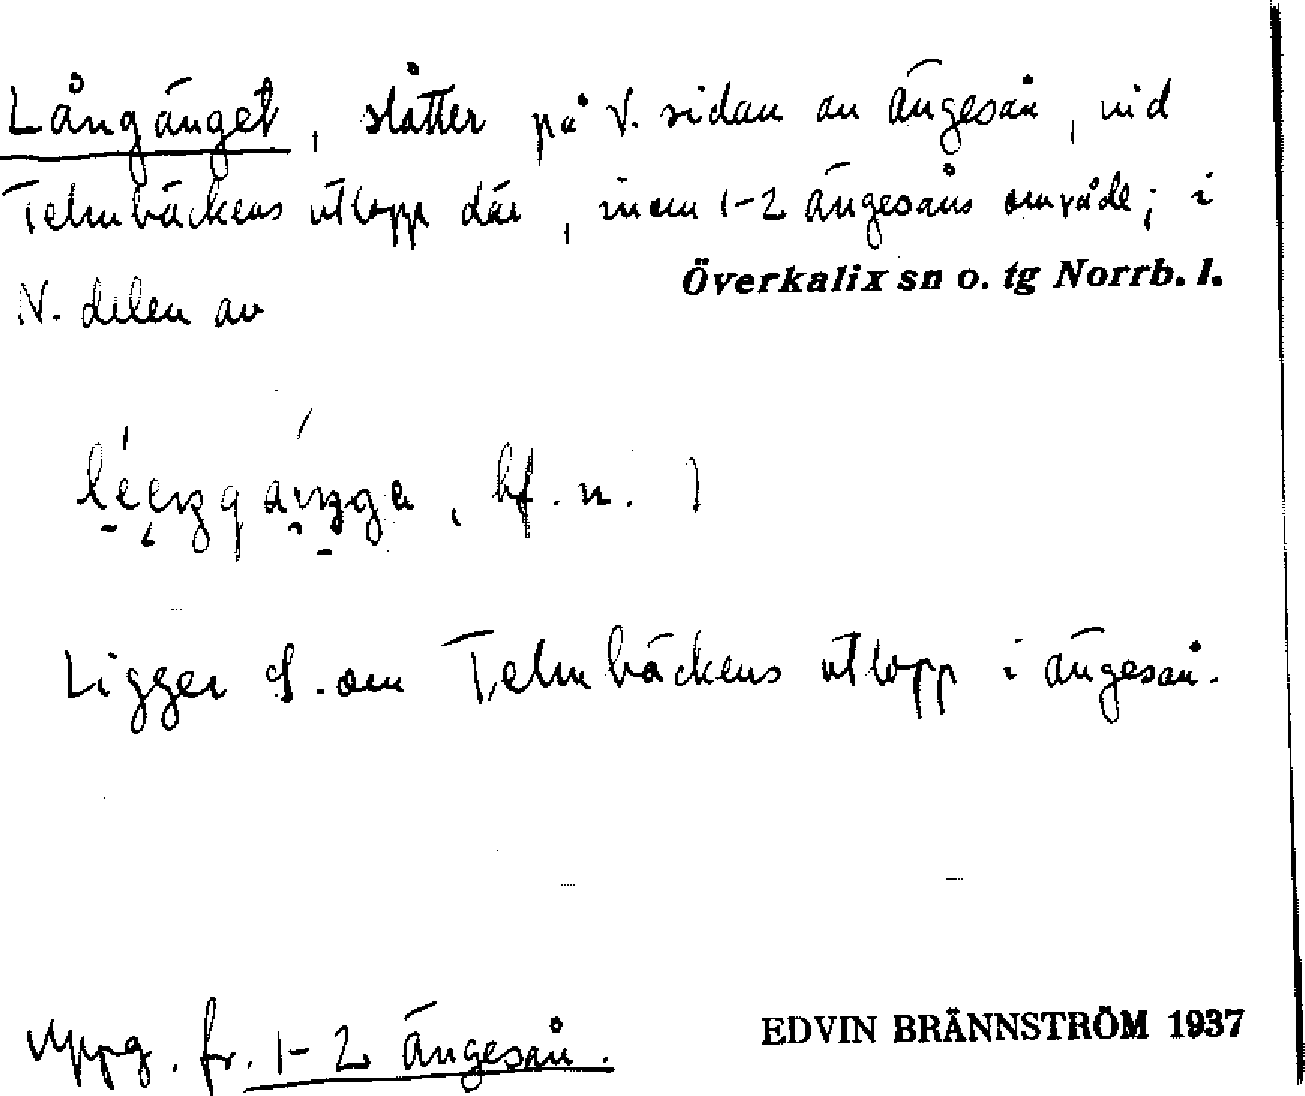 Långänget, slåtter på V. sidan av Ängesån, vid
Telmbäckens utlopp där, inom 1-2 Ängesåns område; i
N. delen av Överkalix sn o. tg Norrb. l.
bf. n.
Ligger S. om Telmbäckens utlopp i Ängesån.
Uppg. fr. 1-2 Ängesån.
EDVIN BRÄNNSTRÖM 1937